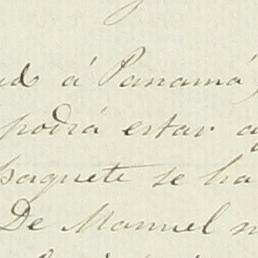 á Panamá
podrá estar
paquete se ha
De Manuel